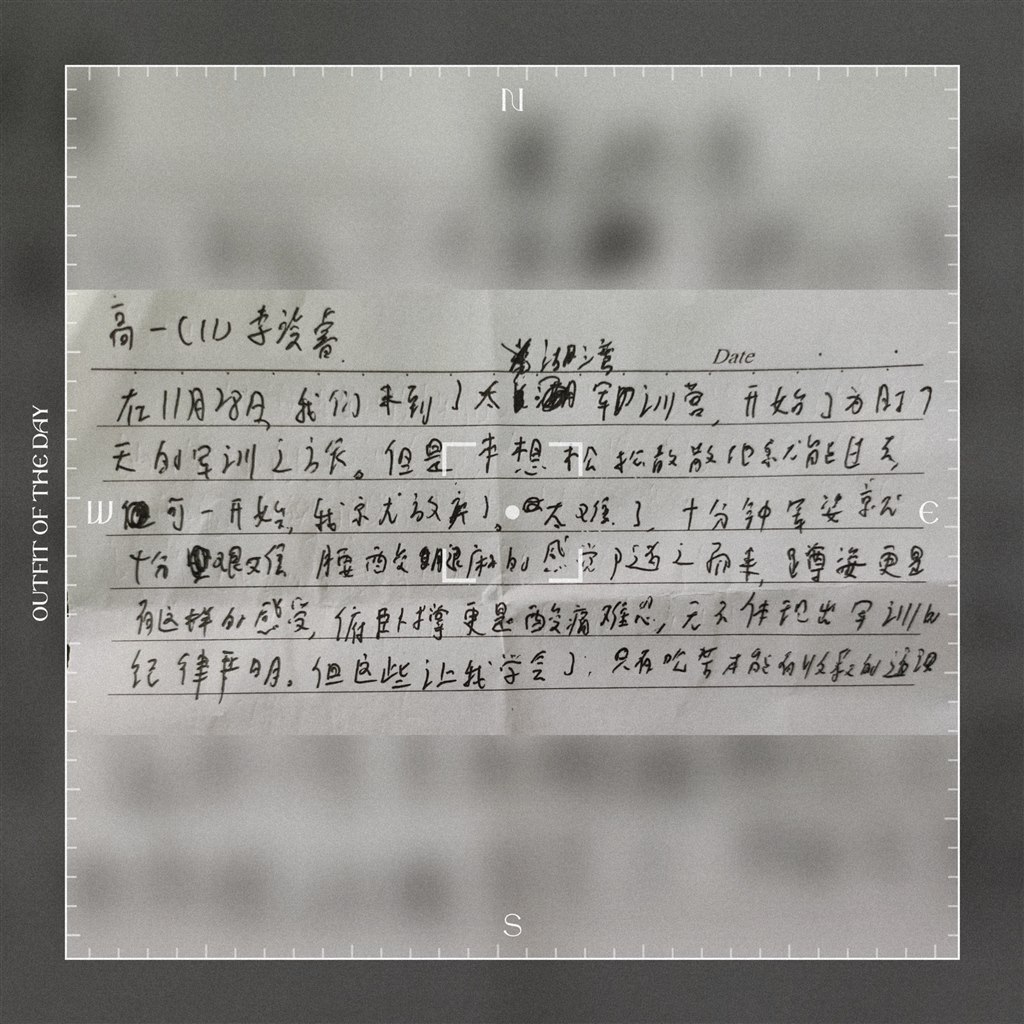 N
高一(11) 李浚睿
湖湾
Date
在11月28日,我们来到了太湖军训营,开始了为期7
天的军训之旅。但是本想松松散散地就能过去
可一开始,我就放弃了。太难了,十分钟军姿就
十分艰难,腰酸腿麻的感觉随之而来,蹲姿更是
有这样的感受,俯卧撑更是酸痛难忍,无不体现出军训的
纪律严明。但这些让我学会了,只有吃苦才能有收获的道理
W
E
S
OUTFIT OF THE DAY